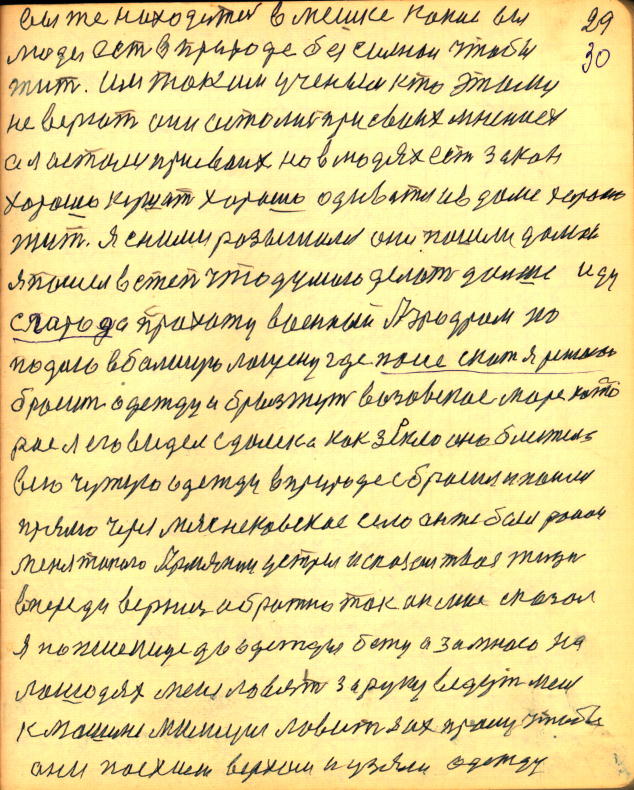 вы же находитес в мешке какие вы 29
люди ест в природе без силнои чтобы 30
жит. им таким ученым кто этому
не верят они астолис при своих мнениех
а я астался при своих но в людях ест закон
хорошо кушат хорошо одыватся и в доме хорошо
жит. я с ними розышолся они пошли домой
я пошел в степ что думаю делат далше иду
с города прохожу военный Аэродром но
подаю в балшую лощену где пасе скот я решаюс
бросит одежду и в азовское море кото
рае я его видел с далека как зекло оно блистело
всю чужую одежду в природе сбросил и пошел
прямо через Мяснековское село он же бояс
меня такого Армянин устрел и сказал твоя жизн
впереди вернис обратно так он мне сказал
я по пшенице до одежды бегу а за мною на
лошодях меня ловят за руку ведут мене
к машине милиции ловит я их прошу чтобы
они поехали верхом и узяли одежду